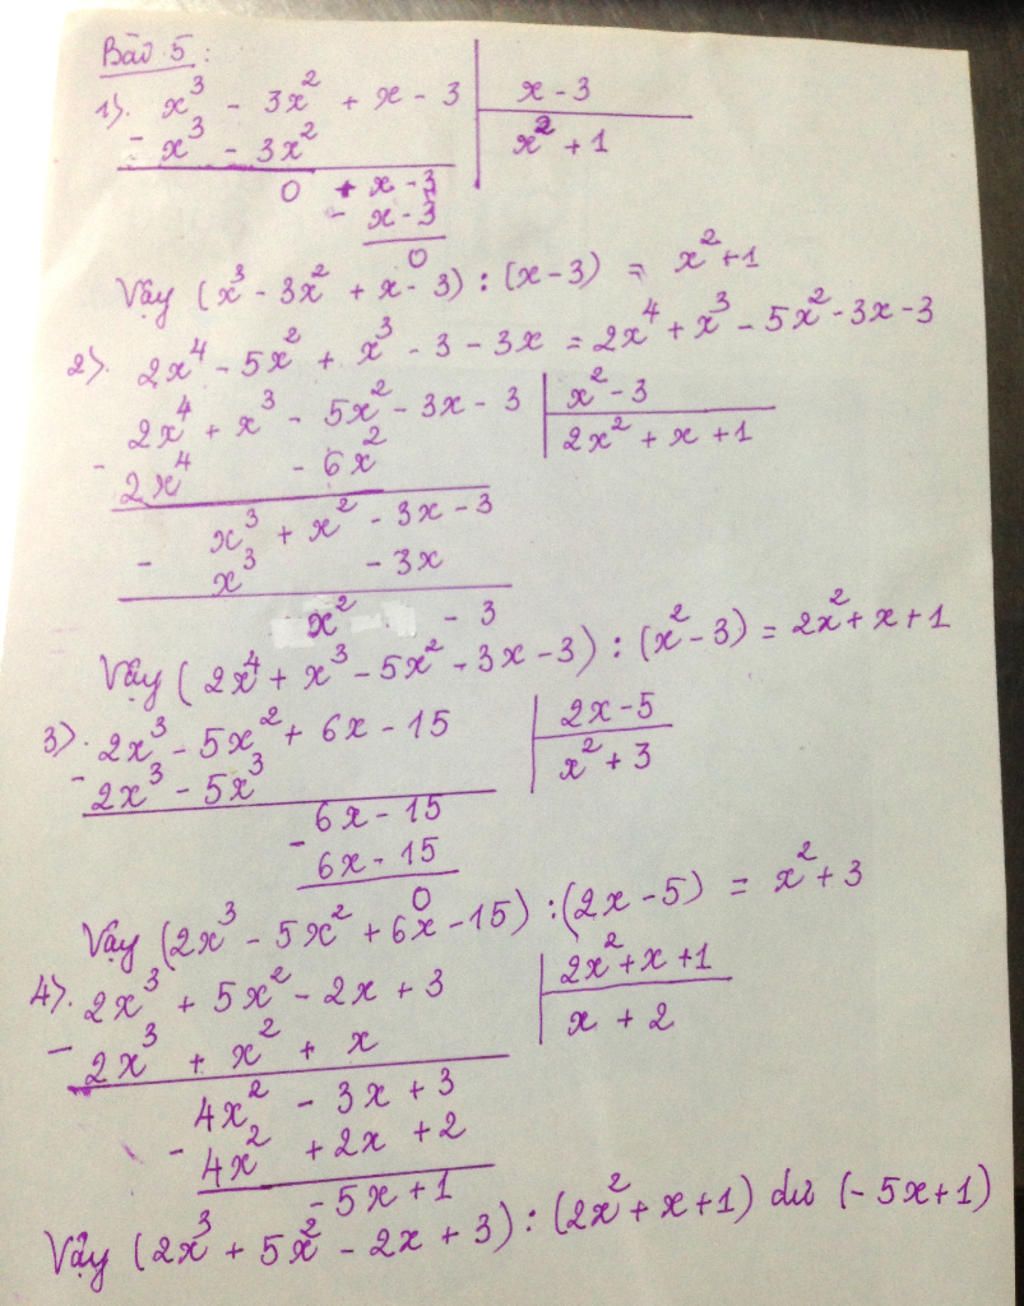 Bài 5:
1). x³ - 3x² + x - 3 | x - 3
- x³ - 3x² | x² + 1
0 + x - 3
- x - 3
0
Vậy (x³ - 3x² + x - 3) : (x - 3) = x² + 1
2). 2x⁴ - 5x² + x³ - 3 - 3x = 2x⁴ + x³ - 5x² - 3x - 3
2x⁴ + x³ - 5x² - 3x - 3 | x² - 3
- 2x⁴ - 6x² | 2x² + x + 1
x³ + x² - 3x - 3
- x³ - 3x
x² - 3
Vậy (2x⁴ + x³ - 5x² - 3x - 3) : (x² - 3) = 2x² + x + 1
3). 2x³ - 5x² + 6x - 15 | 2x - 5
- 2x³ - 5x³ | x² + 3
6x - 15
- 6x - 15
0
Vậy (2x³ - 5x² + 6x - 15) : (2x - 5) = x² + 3
4). 2x³ + 5x² - 2x + 3 | 2x² + x + 1
- 2x³ + x² + x | x + 2
4x² - 3x + 3
- 4x² + 2x + 2
- 5x + 1
Vậy (2x³ + 5x² - 2x + 3) : (2x² + x + 1) dư (- 5x + 1)